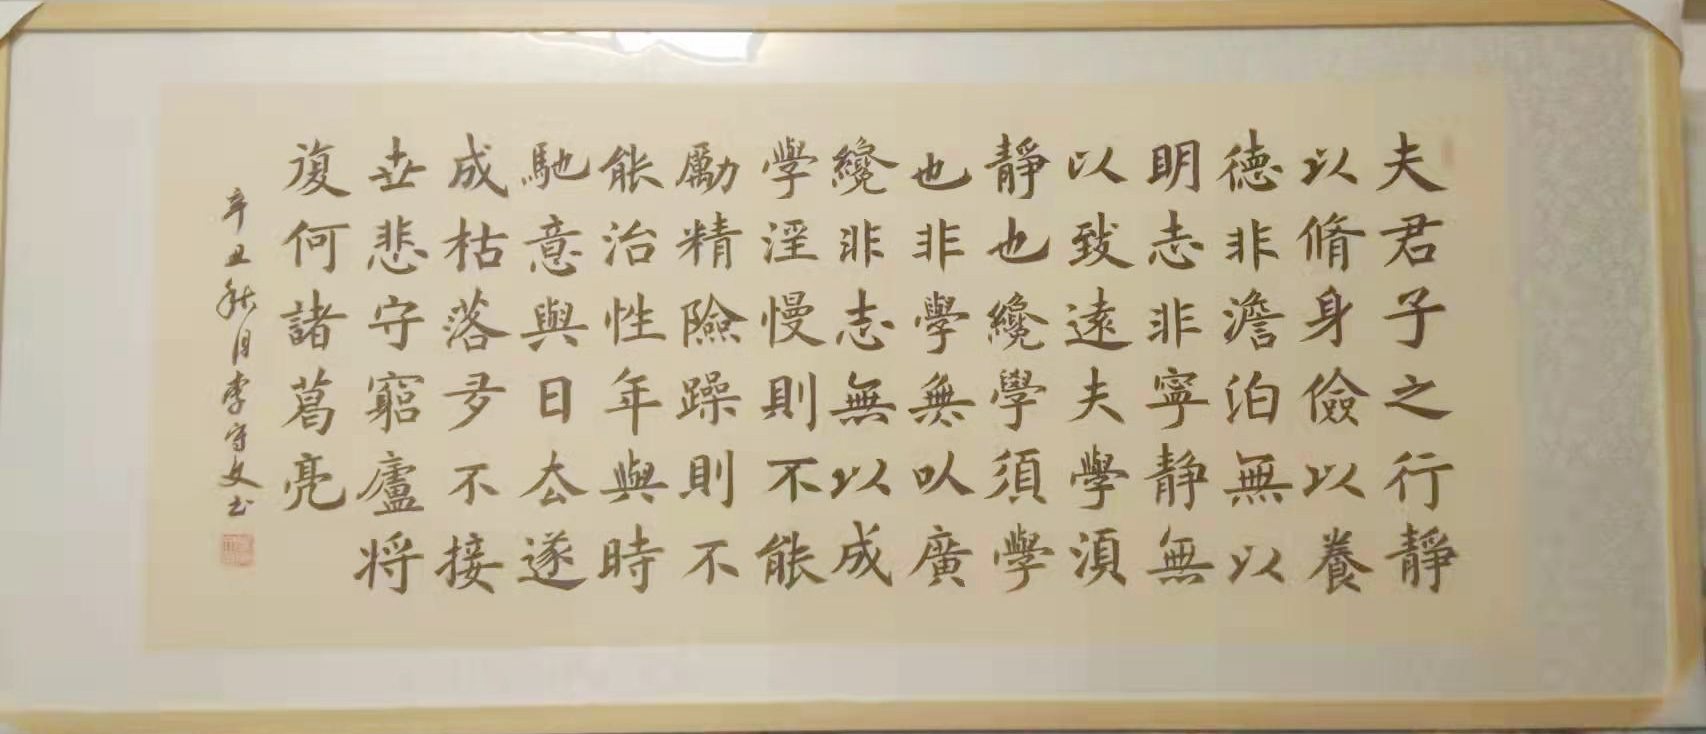 夫君子之行靜
以脩身儉以養
德非澹泊無以
明志非寧靜無
以致遠夫學湏
靜也纔學須學
也非學無以廣
纔非志無以成
學淫慢則不能
勵精險躁則不
能治性年與時
馳意與日去遂
成枯落多不接
世悲守窮廬将
復何諸葛亮
辛丑秋月李守文书